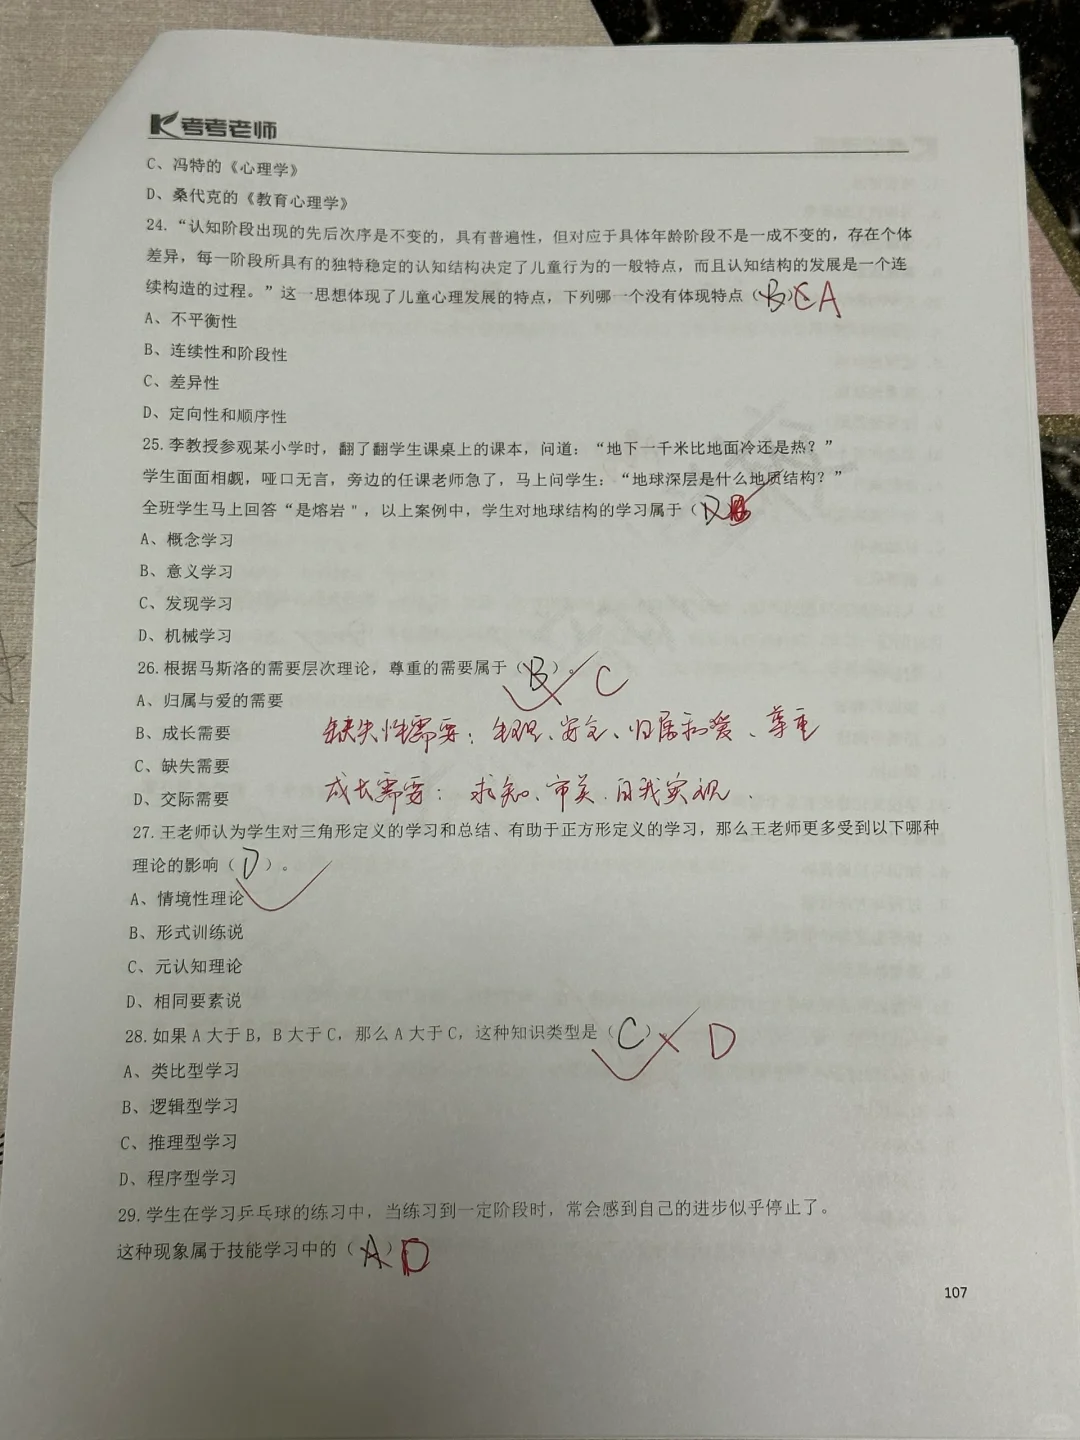 考考老师
C、冯特的《心理学》
D、桑代克的《教育心理学》
24.“认知阶段出现的先后次序是不变的，具有普遍性，但对应于具体年龄阶段不是一成不变的，存在个体
差异，每一阶段所具有的独特稳定的认知结构决定了儿童行为的一般特点，而且认知结构的发展是一个连
续构造的过程。”这一思想体现了儿童心理发展的特点，下列哪一个没有体现特点（B）C A
A、不平衡性
B、连续性和阶段性
C、差异性
D、定向性和顺序性
25.李教授参观某小学时，翻了翻学生课桌上的课本，问道：“地下一千米比地面冷还是热？”
学生面面相觑，哑口无言，旁边的任课老师急了，马上问学生：“地球深层是什么地质结构？”
全班学生马上回答“是熔岩"，以上案例中，学生对地球结构的学习属于（D
A、概念学习
B、意义学习
C、发现学习
D、机械学习
26.根据马斯洛的需要层次理论，尊重的需要属于（B）。 C
A、归属与爱的需要
B、成长需要
缺失性需要：生理、安全、归属和爱、尊重
C、缺失需要
成长需要：求知、审美、自我实现.
D、交际需要
27.王老师认为学生对三角形定义的学习和总结、有助于正方形定义的学习，那么王老师更多受到以下哪种
理论的影响（D）。
A、情境性理论
B、形式训练说
C、元认知理论
D、相同要素说
28.如果 A 大于 B，B 大于 C，那么 A 大于 C，这种知识类型是（C） D
A、类比型学习
B、逻辑型学习
C、推理型学习
D、程序型学习
29.学生在学习乒乓球的练习中，当练习到一定阶段时，常会感到自己的进步似乎停止了。
这种现象属于技能学习中的（A）D
107